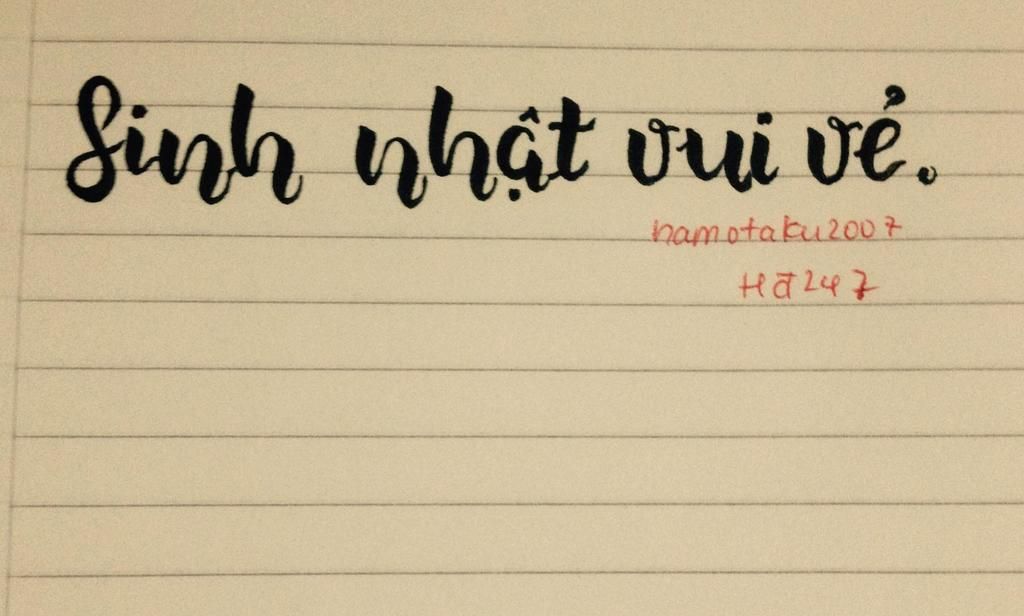 Sinh nhật vui vẻ.
namotaku2007
Hđ247